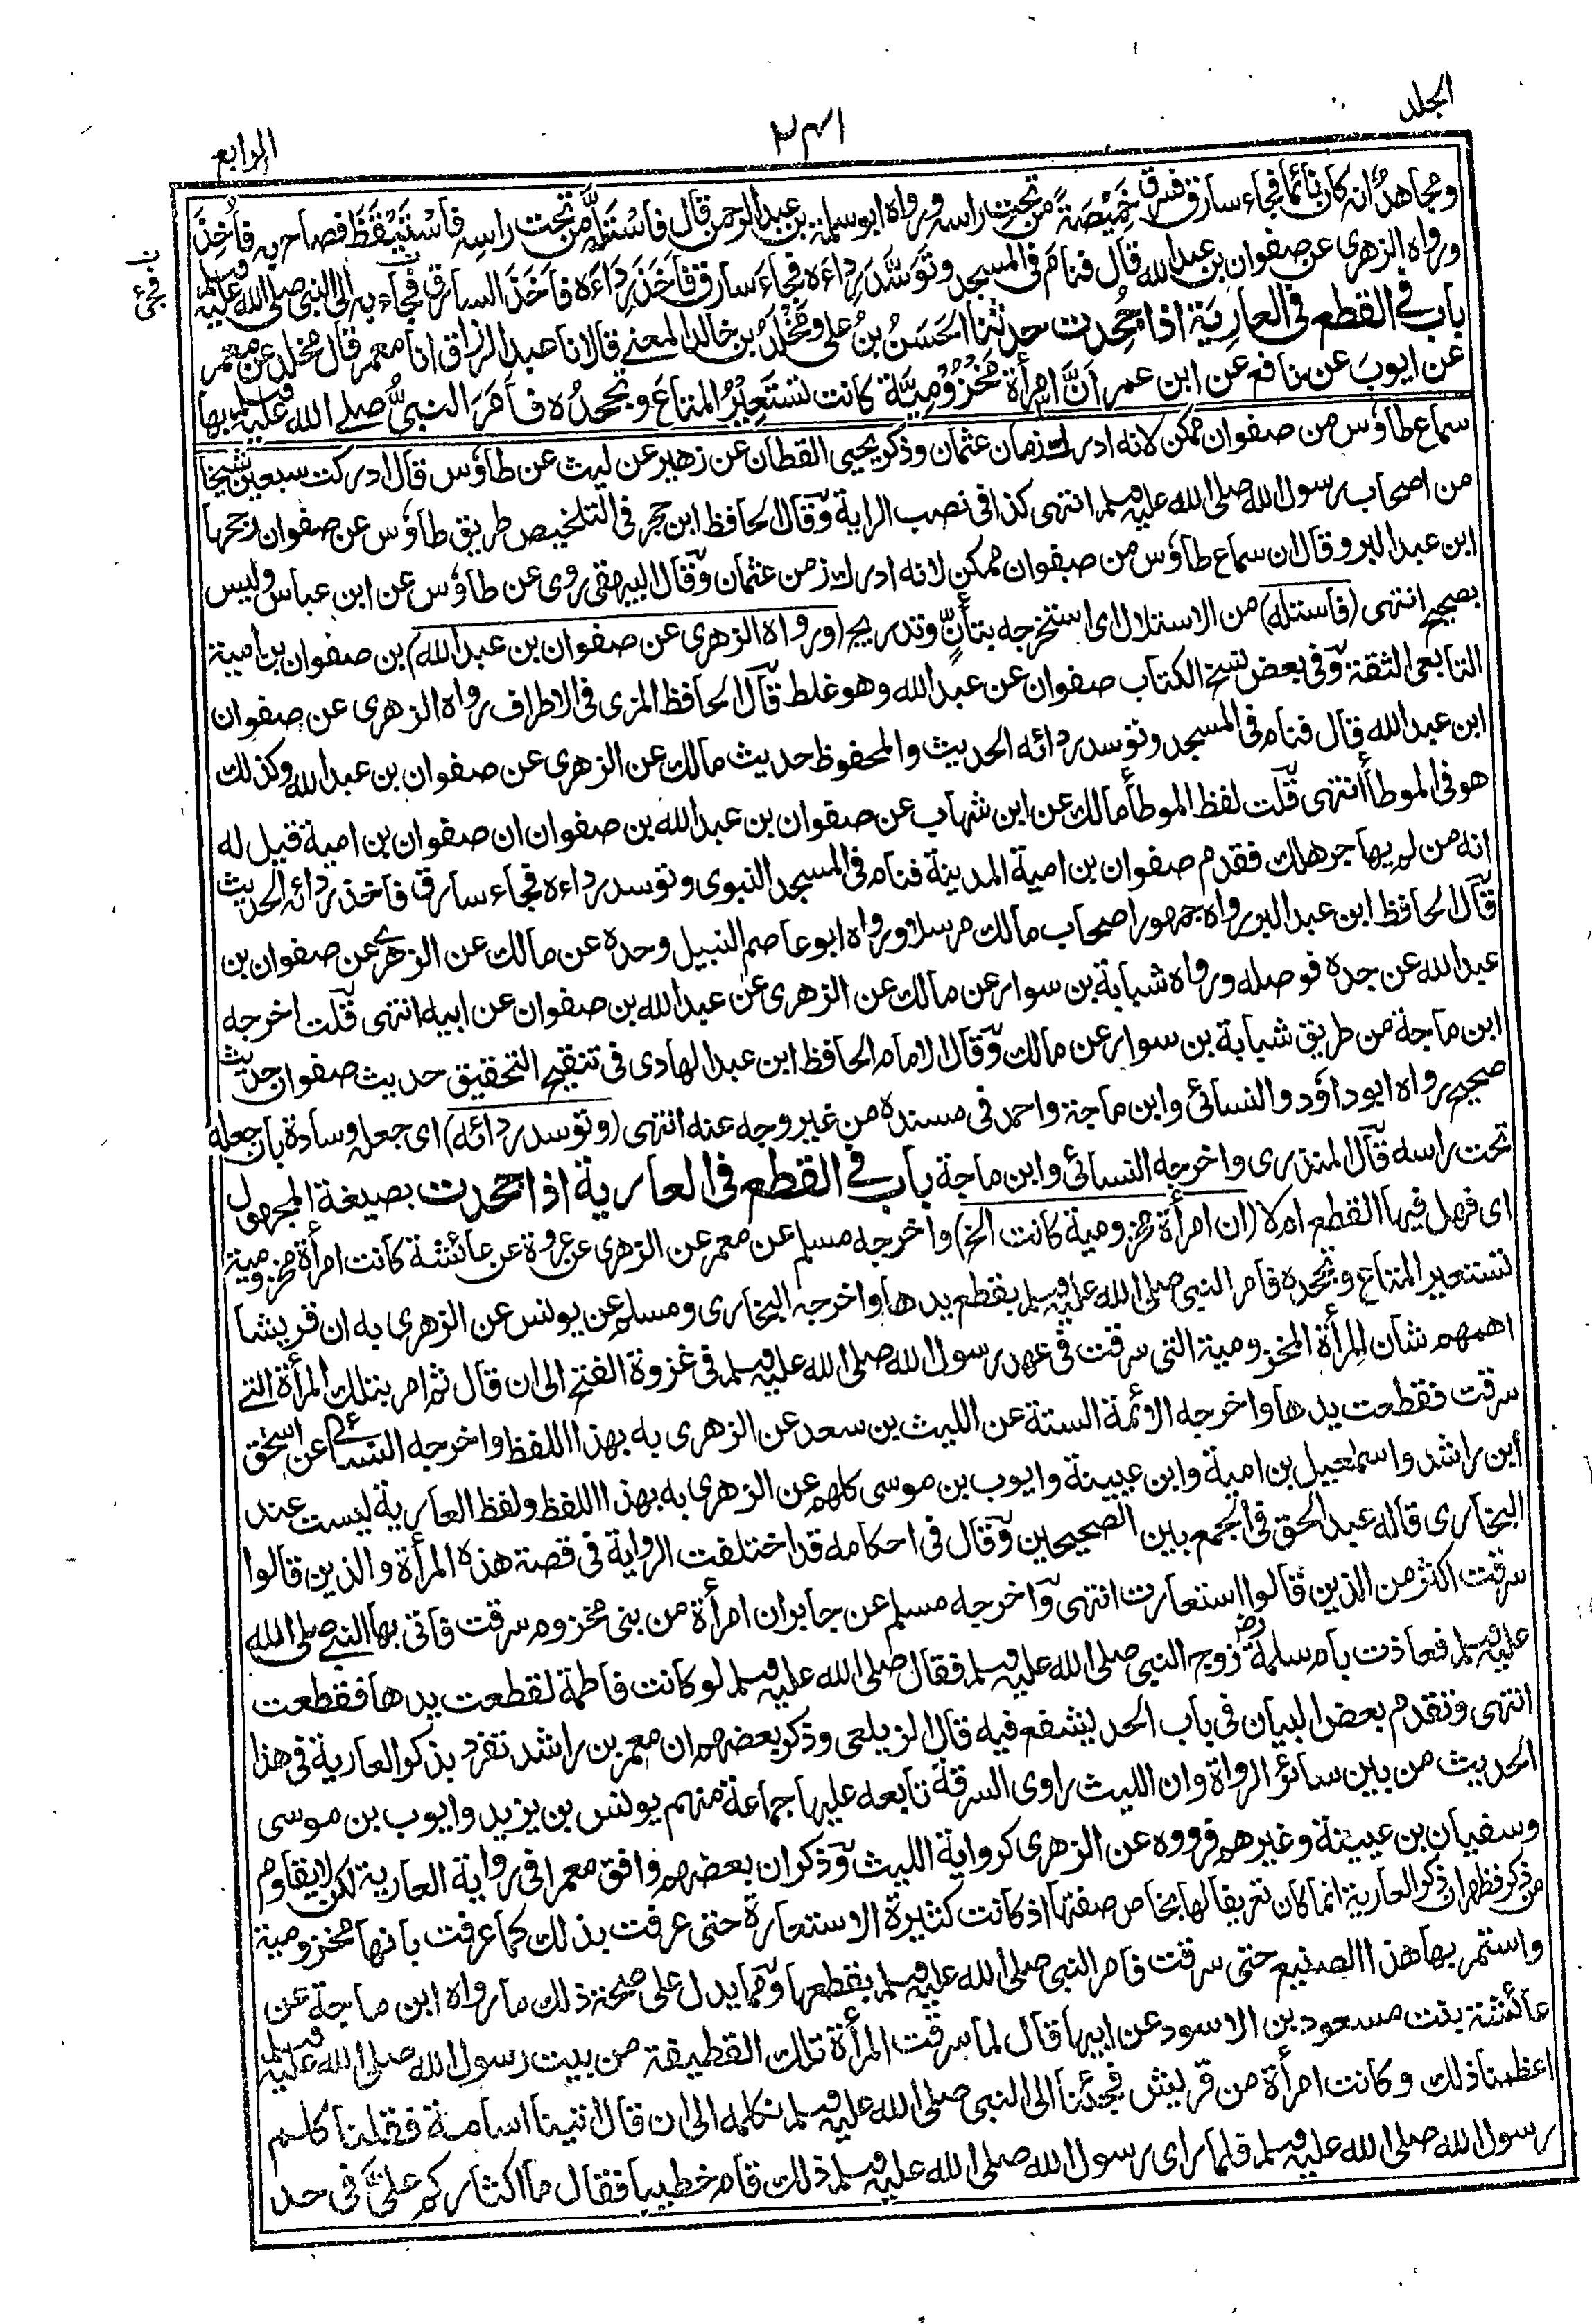 الجلد
٢٤١
الرابع
ومجاهدٌ انه كان نائما فجاء سارق فسرق خَمِيْصَةً من تحتِ راسه ورواه ابو سلمة بن عبد الرحمن قال فاسْتَلَّه من تحت راسِه فاسْتَيْقَظَ فصاح به فأُخِذَ
ورواه الزهرى عن صفوان بن عبد الله قال فنام فى المسجد وتَوَسَّدَ رِداءَه فجاءَ سارق فأَخَذَ رِدَاءَه فاَخَذَ السارقَ فجاء به الى النبى صلى الله عليه وسلم
ن فجئ
باب فى القطع فى العارِيَة اذا جُحِدت حدثنا الحَسَنُ بنُ على ومَخْلَدُ بن خالد المعنى قالا نا عبد الرزاق انا معمر قال مخلد عن معمر
عن ايوبَ عن نافع عن ابن عمر اَنَّ امرأة مَخْزُوْمِيَّة كانت تَسْتَعِيْرُ المتاعَ وتَجْحدُه فاَمَرَ النبىُّ صلى الله عليه وسلم بها
سماع طاؤس من صفوان ممكن لانه ادرك زمان عثمان وذكر يحيى القطان عن زهير عن ليث عن طاؤس قال ادركت سبعين شيخا
من اصحاب رسول الله صلى الله عليه وسلم انتهى كذا فى نصب الراية وقال الحافظ ابن حجر فى التلخيص طريق طاؤس عن صفوان رجحها
ابن عبد البر وقال ان سماع طاؤس من صفوان ممكن لانه ادرك زمن عثمان وقال البيهقى روى عن طاؤس عن ابن عباس وليس
بصحيح انتهى (فاستله) من الاستلال اى استخرجه بتأنٍّ وتدريج (ورواه الزهرى عن صفوان بن عبد الله) بن صفوان بن امية
التابعى الثقة وفى بعض نسخ الكتاب صفوان عن عبد الله وهو غلط قال الحافظ المزى فى الاطراف رواه الزهرى عن صفوان
ابن عبد الله قال فنام فى المسجد وتوسد ردائه الحديث والمحفوظ حديث مالك عن الزهرى عن صفوان بن عبد الله وكذلك
هو فى الموطأ انتهى قلت لفظ الموطأ مالك عن ابن شهاب عن صفوان بن عبد الله بن صفوان ان صفوان بن امية قيل له
انه من لم يهاجر هلك فقدم صفوان بن امية المدينة فنام فى المسجد النبوى وتوسد رداءه فجاء سارق فاخذ ردائه الحديث
قال الحافظ ابن عبد البر رواه جمهور اصحاب مالك مرسلا ورواه ابو عاصم النبيل وحده عن مالك عن الزهرى عن صفوان بن
عبد الله عن جده فوصله ورواه شبابة بن سوار عن مالك عن الزهرى عن عبد الله بن صفوان عن ابيه انتهى قلت اخرجه
ابن ماجة من طريق شبابة بن سوار عن مالك وقال الامام الحافظ ابن عبد الهادى فى تنقيح التحقيق حديث صفوان حديث
صحيح رواه ابو داؤد والنسائى وابن ماجة واحمد فى مسنده من غير وجه عنه انتهى (وتوسد ردائه) اى جعل وسادة بان جعله
تحت راسه قال المنذرى واخرجه النسائى وابن ماجة باب فى القطع فى العارية اذا جحدت بصيغة المجهول
اى فهل فيها القطع ام لا (ان امرأة مخزومية كانت الخ) واخرجه مسلم عن معمر عن الزهرى عن عروة عن عائشة كانت امرأة مخزومية
تستعير المتاع وتجحده فامر النبى صلى الله عليه وسلم بقطع يدها واخرجه البخارى ومسلم عن يونس عن الزهرى به ان قريشا
اهمهم شان المرأة المخزومية التى سرقت فى عهد رسول الله صلى الله عليه وسلم فى غزوة الفتح الى ان قال ثم امر بتلك المرأة التى
سرقت فقطعت يدها واخرجه الائمة الستة عن الليث بن سعد عن الزهرى به بهذا اللفظ واخرجه النسائى عن اسحق
ابن راشد واسمعيل بن امية وابن عيينة وايوب بن موسى كلهم عن الزهرى به بهذا اللفظ ولفظ العارية ليست عند
البخارى قاله عبد الحق فى الجمع بين الصحيحين وقال فى احكامه قد اختلفت الرواية فى قصة هذه المرأة والذين قالوا
سرقت اكثر من الذين قالوا استعارت انتهى واخرجه مسلم عن جابر ان امرأة من بنى مخزوم سرقت فاتى بها النبى صلى الله
عليه وسلم فعاذت بام سلمة رض زوج النبى صلى الله عليه وسلم فقال صلى الله عليه وسلم لو كانت فاطمة لقطعت يدها فقطعت
انتهى وتقدم بعض البيان فى باب الحد يشفع فيه قال الزيلعى وذكر بعضهم ان معمر بن راشد تفرد بذكر العارية فى هذا
الحديث من بين سائر الرواة وان الليث راوى السرقة تابعه عليها جماعة منهم يونس بن يزيد وايوب بن موسى
وسفيان بن عيينة وغيرهم فرووه عن الزهرى كرواية الليث وذكر ان بعضهم وافق معمرا فى رواية العارية لكن لا يقاوم
من ذكر فظهر ان ذكر العارية انما كان تعريفا لها بخاص صفتها اذ كانت كثيرة الاستعارة حتى عرفت بذلك كما عرفت بانها مخزومية
واستمر بها هذا الصنيع حتى سرقت فامر النبى صلى الله عليه وسلم بقطعها ومما يدل على صحة ذلك ما رواه ابن ماجة عن
عائشة بنت مسعود بن الاسود عن ابيها قال لما سرقت المرأة تلك القطيفة من بيت رسول الله صلى الله عليه وسلم
اعظمنا ذلك وكانت امرأة من قريش فجئنا الى النبى صلى الله عليه وسلم نكلمه الى ان قال اتينا اسامة فقلنا كلم
رسول الله صلى الله عليه وسلم فلما راى رسول الله صلى الله عليه وسلم ذلك قام خطيبا فقال ما اكثاركم علىَّ فى حد